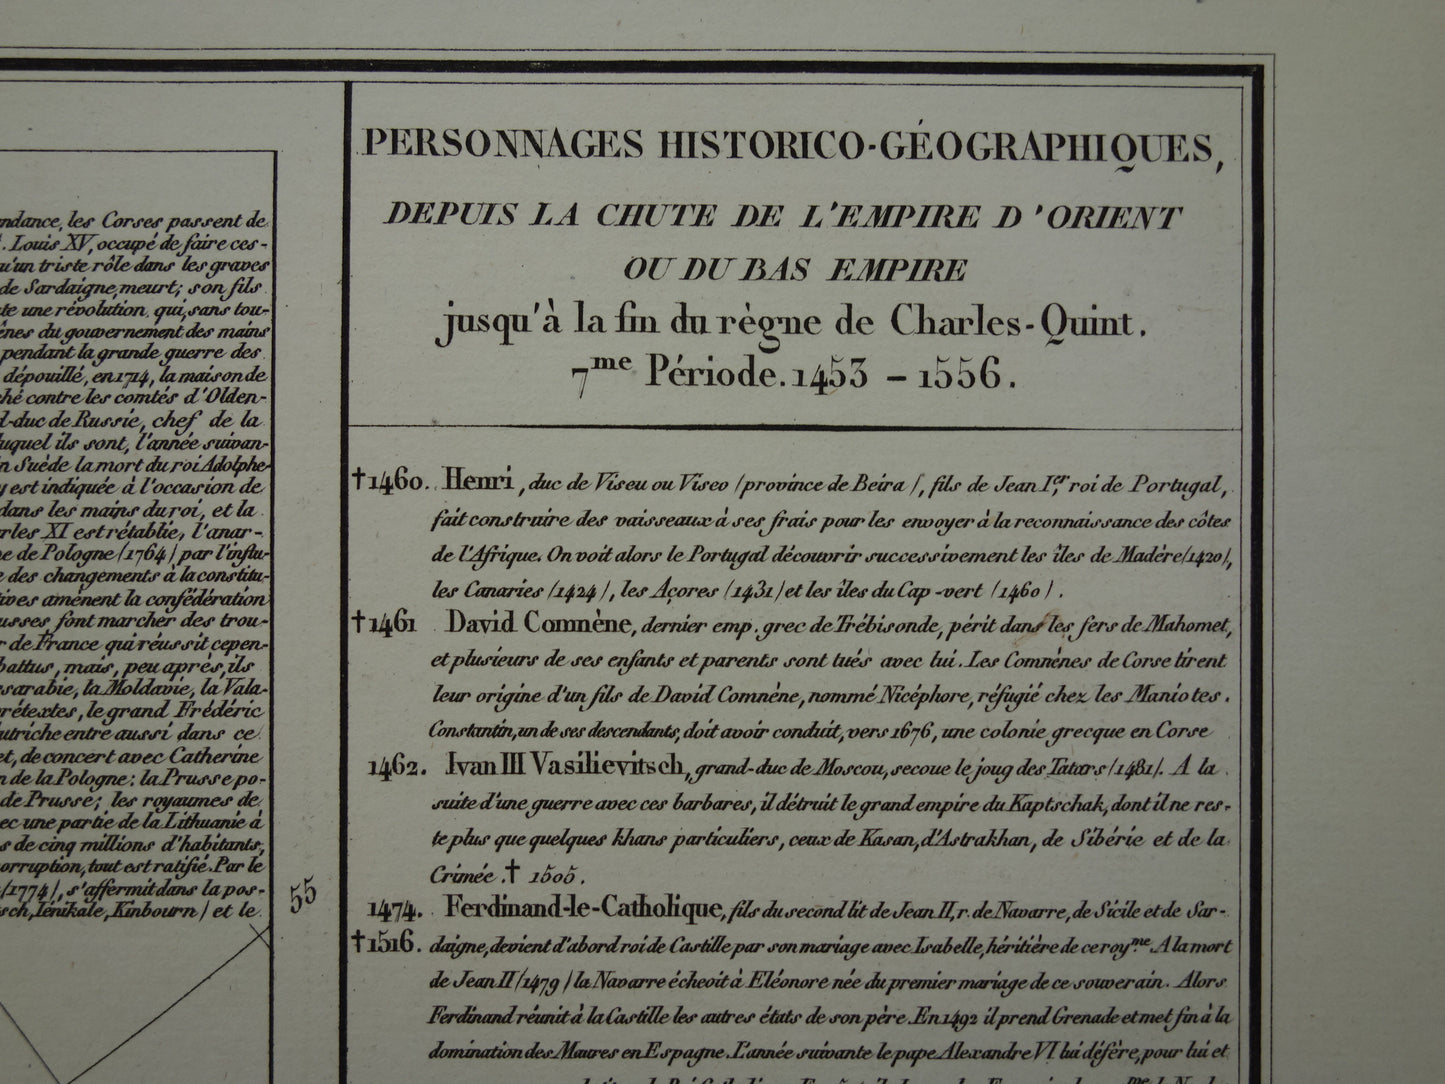 ndance, les Corses passent de
. Louis XV, occupé de faire ces-
u'un triste rôle dans les graves
de Sardaigne, meurt; son fils
te une révolution, qui, sans tou-
ènes du gouvernement des mains
pendant la grande guerre des
dépouillé, en 1714, la maison de
ché contre les comtés d'Olden-
d-duc de Russie, chef de la
uquel ils sont, l'année suivan-
n Suède la mort du roi Adolphe-
y est indiquée à l'occasion de
dans les mains du roi, et la
rles XI est rétablie, l'anar-
e de Pologne (1764) par l'influ-
e des changements à la constitu-
tives amènent la confédération
usses, font marcher des trou-
r de France qui réussit cepen-
battus, mais, peu après, ils
sarabie, la Moldavie, la Vala-
rétextes, le grand Frédéric
utriche entre aussi dans ce
et, de concert avec Catherine
n de la Pologne: la Prusse po-
de Prusse; les royaumes de
ec une partie de la Lithuanie à
s de cinq millions d'habitants,
orruption, tout est ratifié. Par le
(1774), s'affermit dans la pos-
sch, Iénikale, Kinbourn) et le
55
PERSONNAGES HISTORICO-GÉOGRAPHIQUES,
DEPUIS LA CHUTE DE L'EMPIRE D'ORIENT
OU DU BAS EMPIRE
jusqu'à la fin du règne de Charles-Quint.
7me Période. 1453 – 1556.
†1460. Henri, duc de Viseu ou Viseo (province de Beira), fils de Jean Ier, roi de Portugal,
fait construire des vaisseaux à ses frais pour les envoyer à la reconnaissance des côtes
de l'Afrique. On voit alors le Portugal découvrir successivement les îles de Madère (1420),
les Canaries (1424), les Açores (1431) et les îles du Cap-vert (1460).
†1461 David Comnène, dernier emp. grec de Trébisonde, périt dans les fers de Mahomet,
et plusieurs de ses enfants et parents sont tués avec lui. Les Comnènes de Corse tirent
leur origine d'un fils de David Comnène, nommé Nicéphore, réfugié chez les Maniotes.
Constantin, un de ses descendants, doit avoir conduit, vers 1676, une colonie grecque en Corse
1462. Ivan III Vasilievitsch, grand-duc de Moscou, secoue le joug des Tatars (1481). A la
suite d'une guerre avec ces barbares, il détruit le grand empire du Kaptschak, dont il ne res-
te plus que quelques khans particuliers, ceux de Kasan, d'Astrakhan, de Sibérie et de la
Crimée. † 1505.
1474. Ferdinand-le-Catholique, fils du second lit de Jean II, r. de Navarre, de Sicile et de Sar-
†1516. daigne, devient d'abord roi de Castille par son mariage avec Isabelle, héritière de ce roy.me. A la mort
de Jean II (1479) la Navarre échoit à Eléonore née du premier mariage de ce souverain. Alors
Ferdinand réunit à la Castille les autres états de son père. En 1492 il prend Grenade et met fin à la
domination des Maures en Espagne. L'année suivante le pape Alexandre VI lui défère, pour lui et